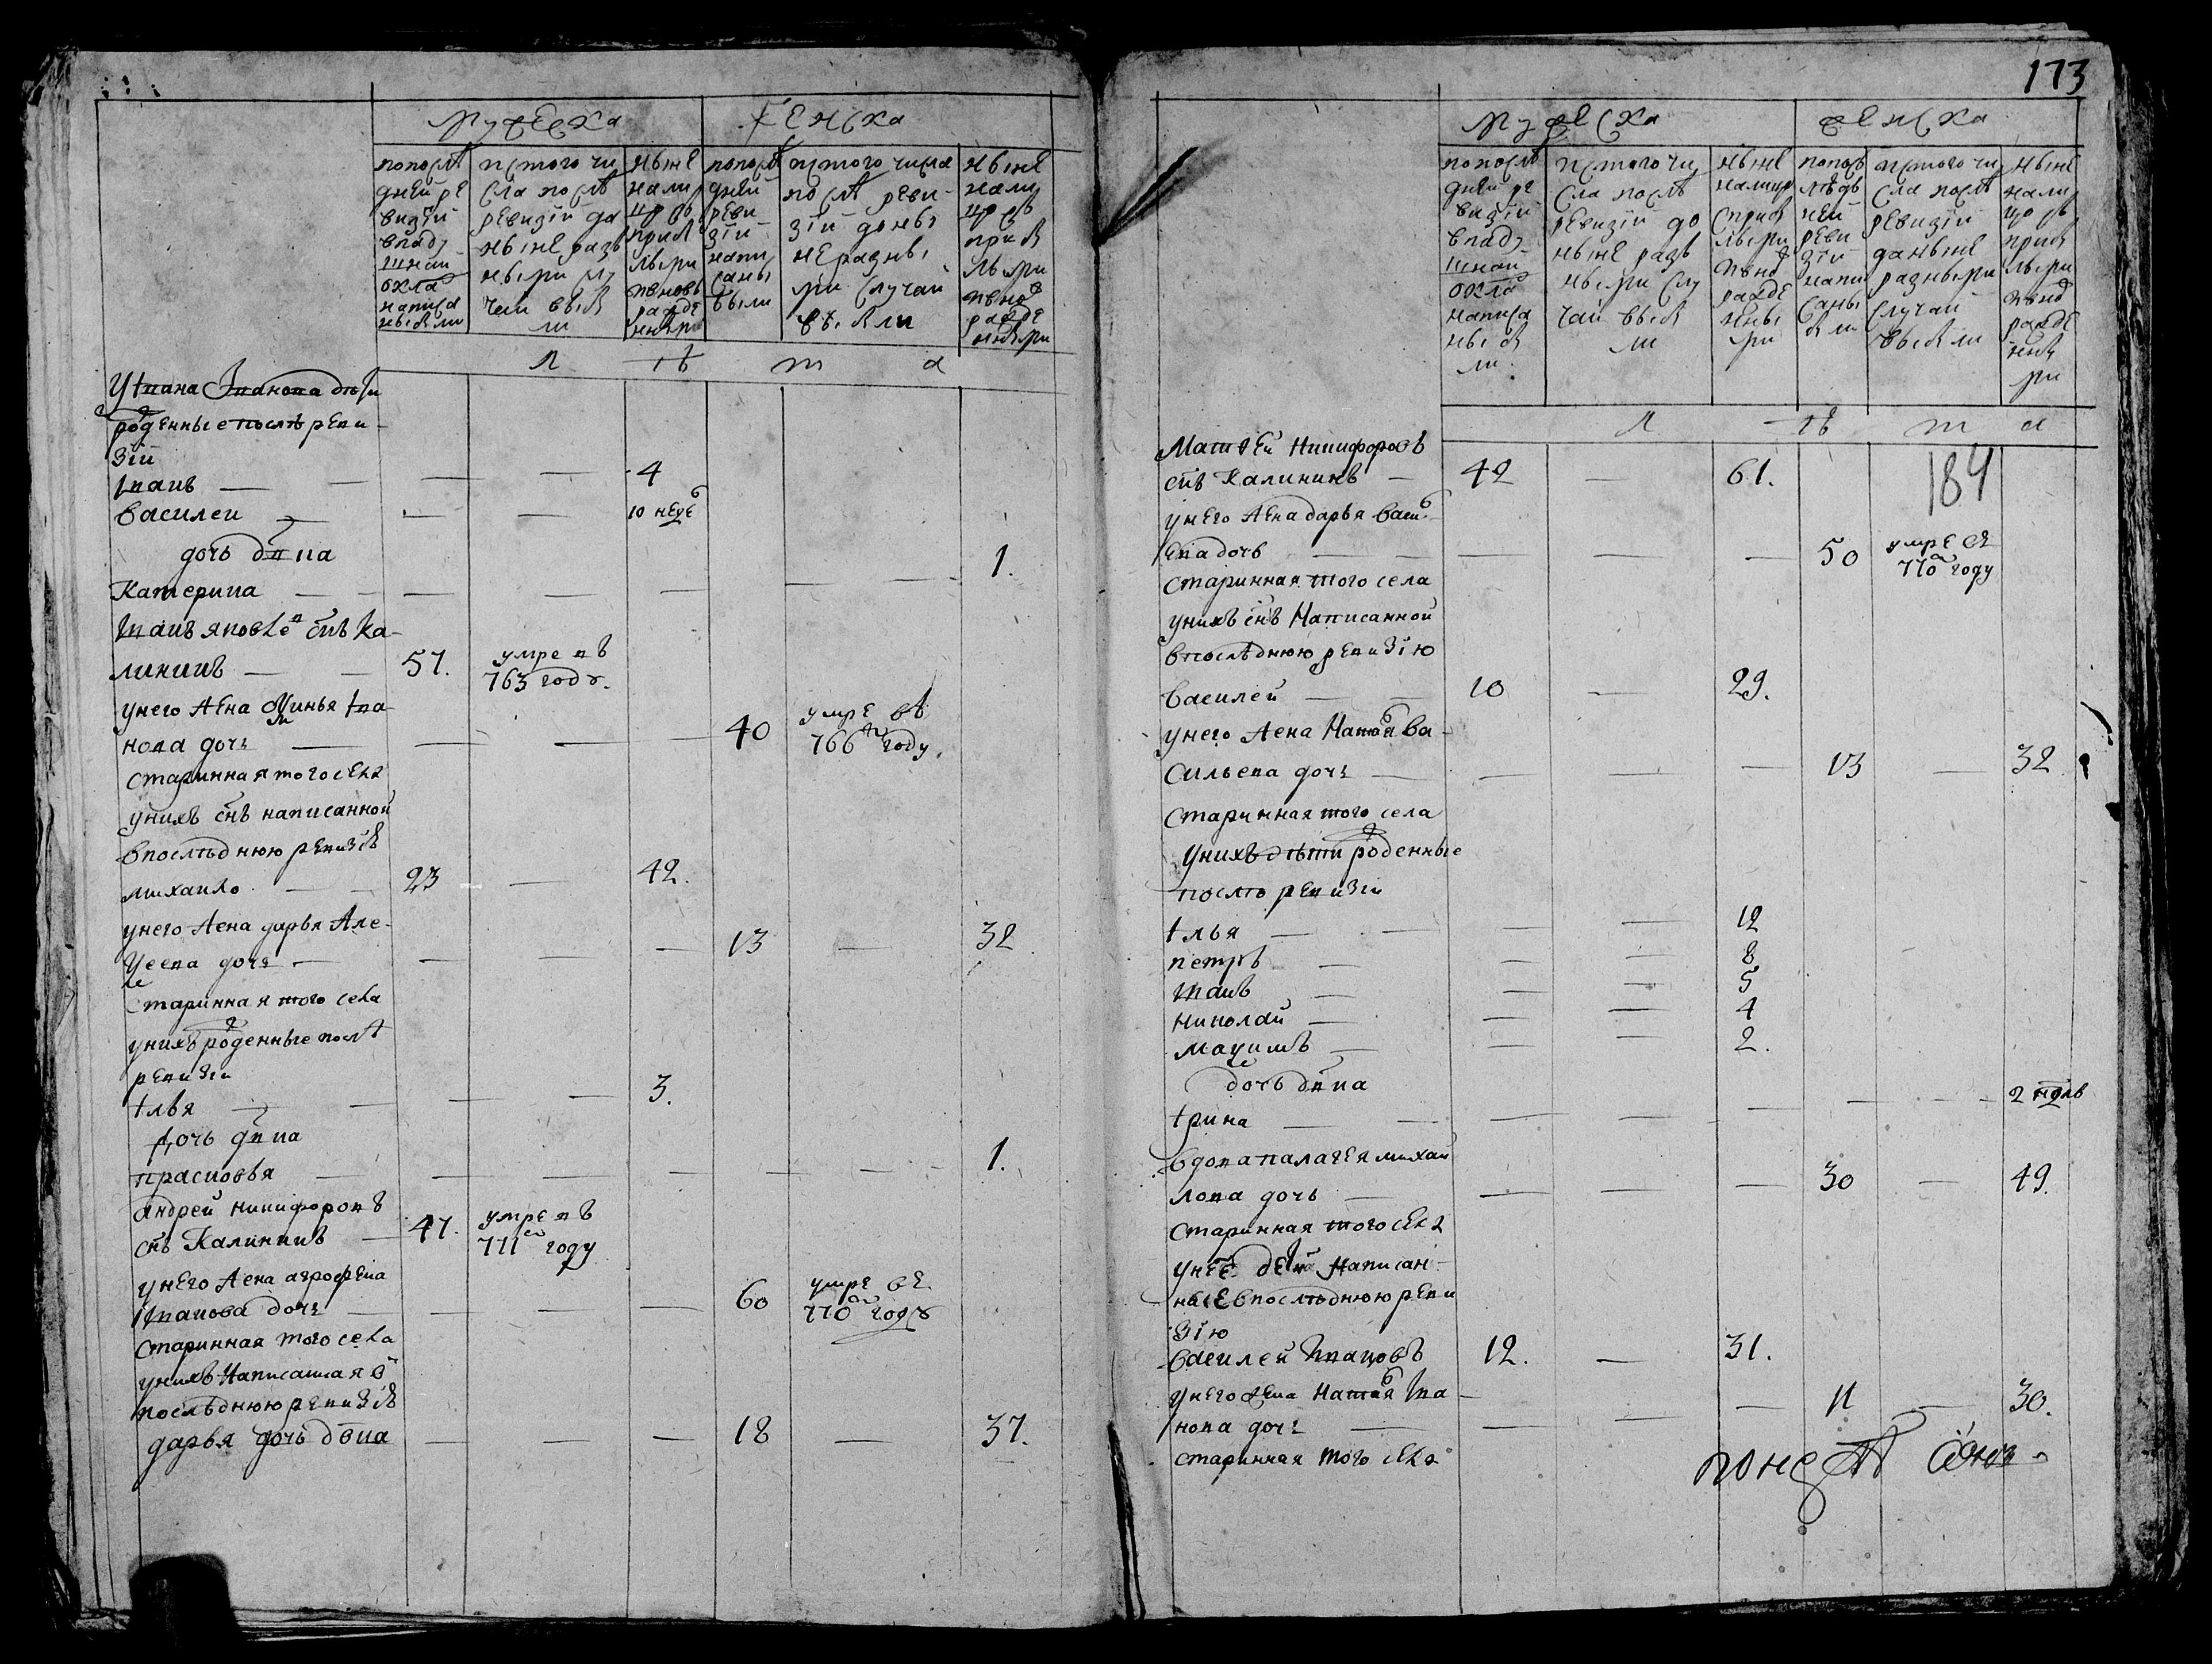 173
мужеска
женска
попослѣ дней ре визiи вподу шнои окла написа ны были
истого чи сла послѣ ревизiи до ныне разъ ными слу чаи выбы ли
ныне нали цо съ прибы лыми вновь рожде ными
попослѣ дней реви зiи напи саны были
истого числа послѣ реви зiи доны не разны ми случаи выбыли
ныне нали цо съ прибы лыми вновь рожде ными
лѣта
у Ивана Иванова дѣти
рожденные послѣ реви-
зiи
Иванъ — — — — 4
Василеи — — — 10 неде
дочь дѣвка
Катерина — — — — — — 1.
Иванъ Яковлевъ снъ Ка-
лининъ — 57. умре въ 763 году.
унего жена Ксинья Ива-
нова дочь — — — — 40 умре въ 766м году.
старинная того села
унихъ снъ написанной
в последнюю ревизiю
михаило — 23 — 42.
унего жена дарья Але-
ксеева дочь — — — — 13 — 32
старинная того села
унихъ рожденные послѣ
ревизiи
Илья — — — 3.
дочь дѣвка
прасковья — — — — — — 1.
андрей никифоровъ
снъ Калининъ — 47. умре въ 771м году
унего жена агрофена
Иванова дочь — — — — 60 умре въ 770м году
старинная того села
унихъ написанная в
последнюю ревизiю
дарья дочь дѣвка — — — 18 — 37.
мужеска
женска
попослѣ дней ре визiи вподу шнои окла написа ны бы ли
истого чи сла послѣ ревизiи до ныне разъ ными слу чаи выбы ли
ныне налицо сприбы лыми вновь рожде ны ми
попос лѣдъ ней реви зiи напи саны были
истого чи сла послѣ ревизiи доныне разными случаи выбыли
ныне нали цо съ прибы лыми вновь рожде ны ми
лѣта
Матвѣй никифоровъ
снъ Калининъ — 42 — 61. 184
унего жена дарья васи-
ева дочь — — — — 50 умре въ 770м году
старинная того села
унихъ снъ Написанной
в последнюю ревизiю
василей — 10 — 29.
унего жена Наталья Ва-
сильева дочь — — — — 13 — 32
старинная того села
унихъ дѣти рожденные
послѣ ревизiи
Илья — — — 12
петръ — — — 8
Иванъ — — — 5
николай — — — 4
максимъ — — — 2.
дочь дѣвка
Ирина — — — — — — 2 недль
вдова палагея михаи
лова дочь — — — — 30 — 49.
старинная того села
унее дети Написан-
ные в последнюю реви
зiю
василей Ивановъ 12. — 31.
унего жена Наталья Ива-
нова дочь — — — 11 — 30.
старинная того села